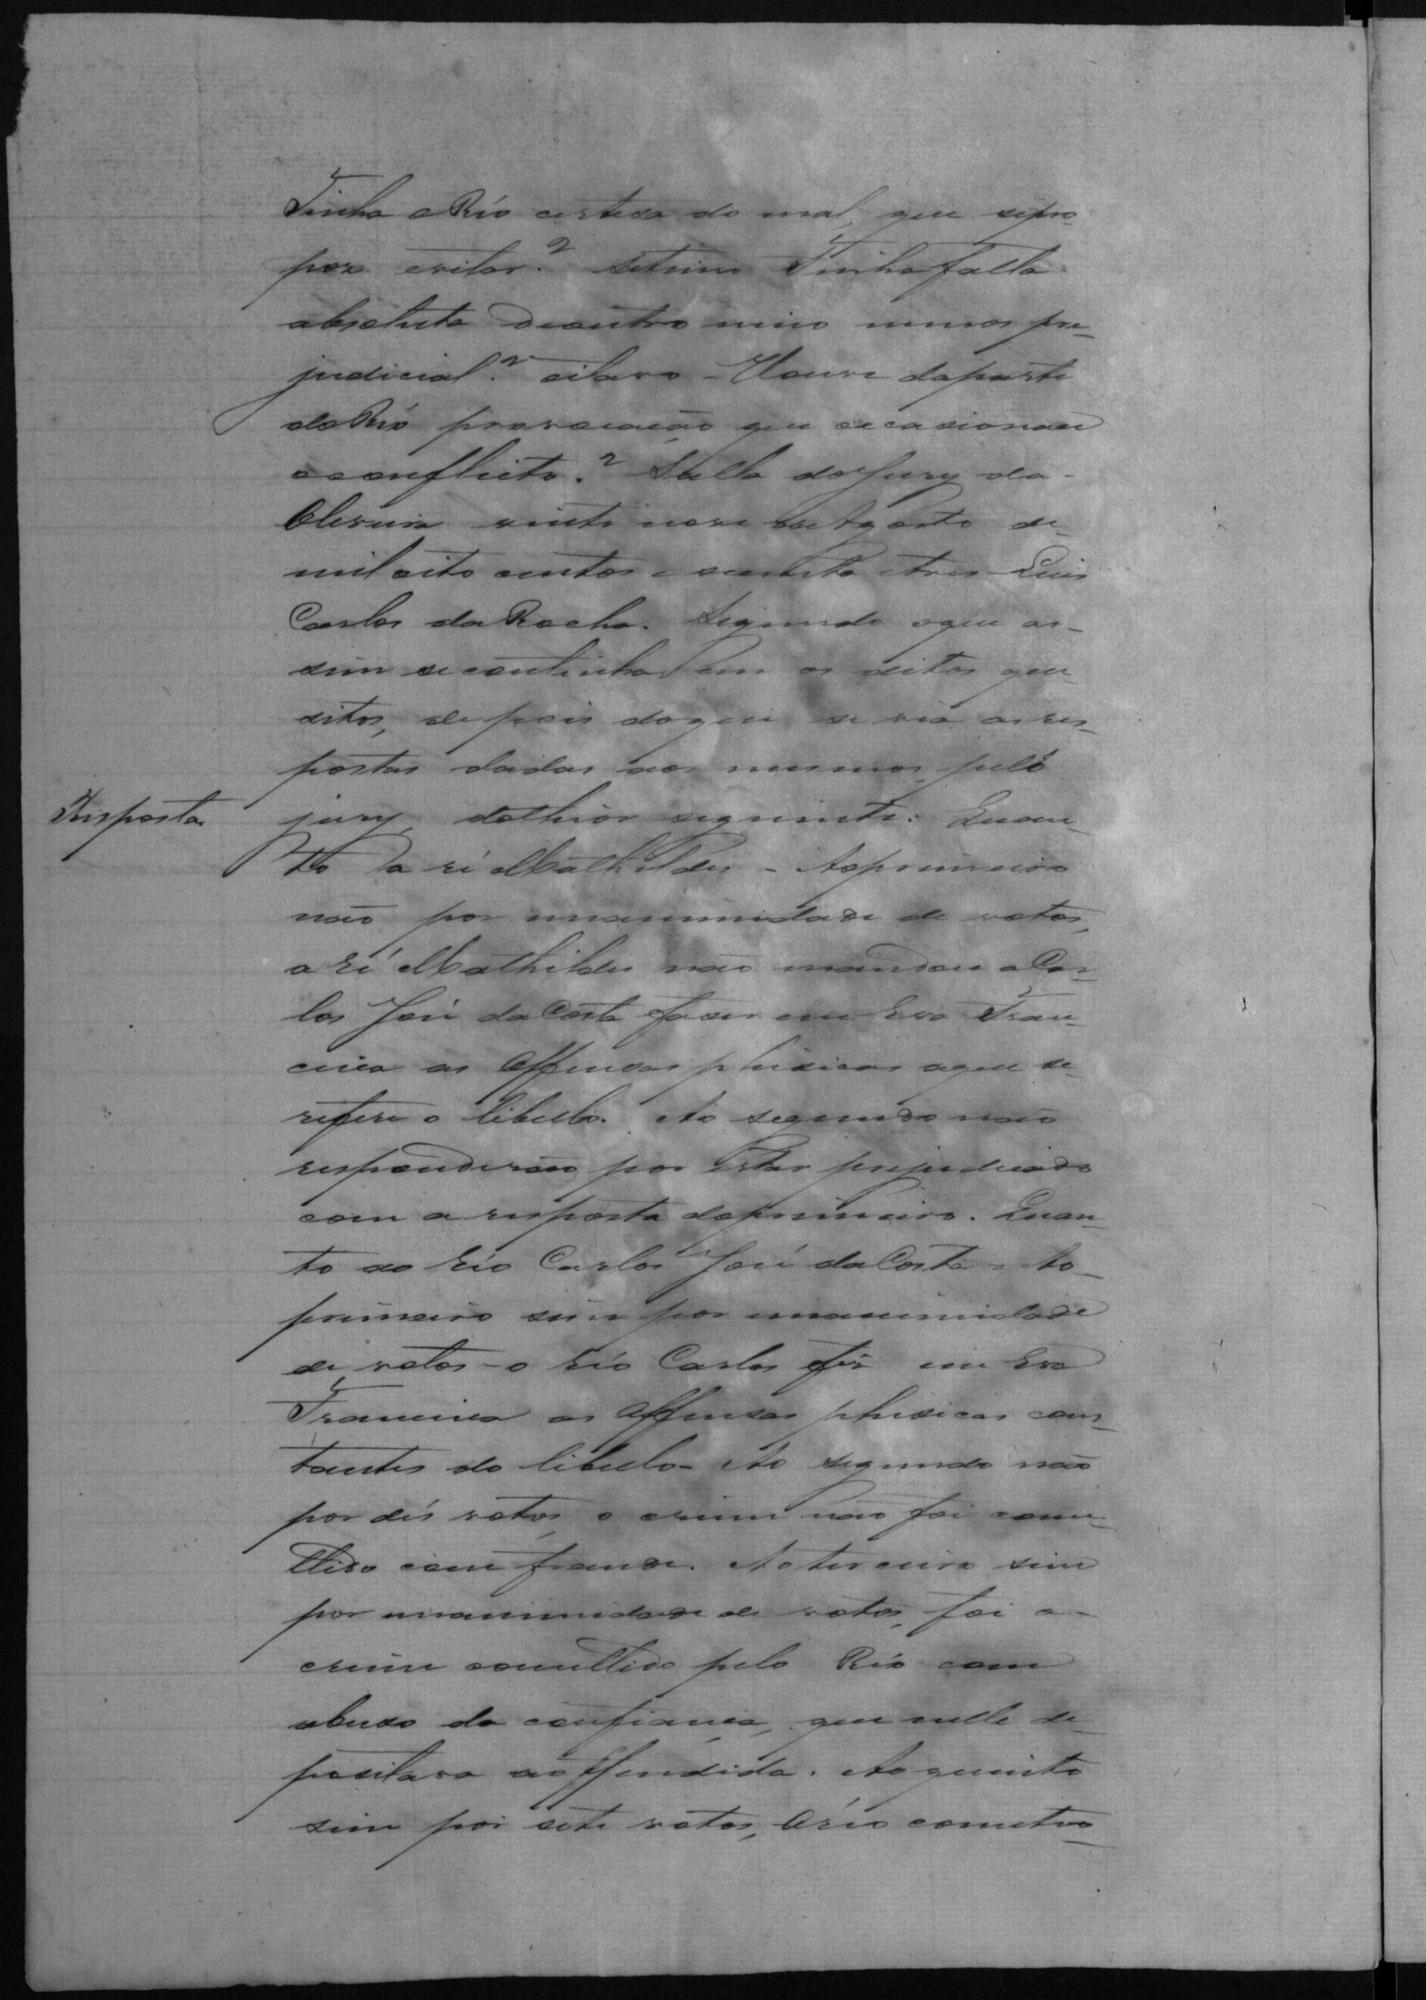 Tinha o Réo certesa do mal, que sepro-
poz evitar? Setimo Tinha falta
absoluta deoutro meio menos pre-
judicial? oitavo – Houve daparte
do Réo provocação que occasionou
oconflicto? Salla doJury da
vinte nove de Agosto de
mil oito centos e setenta etres Luis
Carlos da Rocha. Segundo oque as-
sim se continha em os ditos que-
sitos, depois doque se via as res-
postas dadas aos mesmos pelo
Resposta
jury, dotheor seguinte: Quan-
to a ré Mathildes – Aoprimeiro
não por unanimidade de votos,
a ré Mathildes não mandou a Car-
los José da Costa faser em Eva Fran-
cisca as offensas phisicas aque se
refere o libello. Ao segundo não
responderão por estar prejudicado
com a resposta doprimeiro. Quan-
to ao réo Carlos José da Costa – Ao
primeiro sim por unanimidade
de votos – o réo Carlos fez em Eva
Francisca as offensas phisicas cons-
tantes do libello – Ao segundo não
por dés votos, o crime não foi come-
ttido com fraude. Ao terceiro sim
por unanimidade de votos, foi o
crime comettido pelo Réo com
abuso da confiança, que nelle de-
positava aoffendida. Ao quinto
sim por sete votos, Oréo cometteo